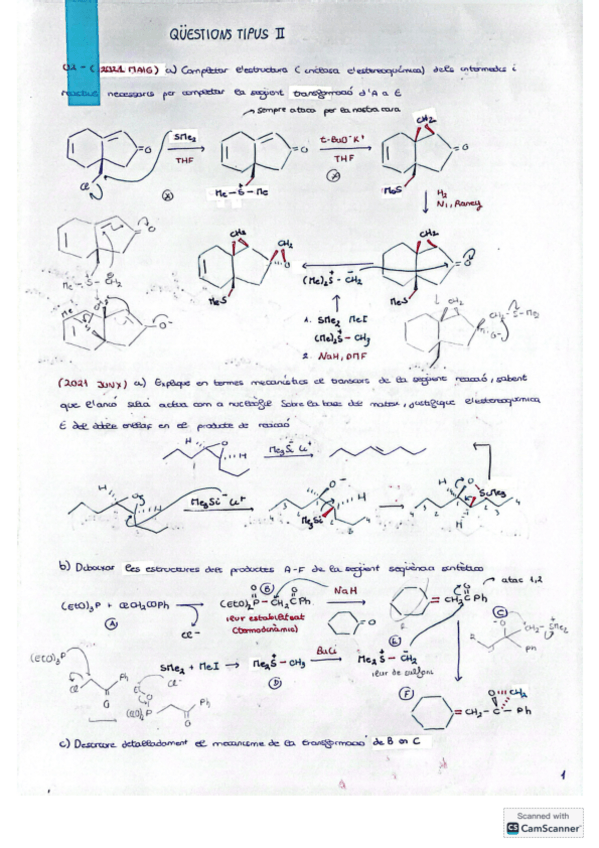 QÜESTIONS TIPUS II
Q2 - (2021 MAIG) a) Completar l'estructura (inclosa l'estereoquímica) dels intermedis i
reactius necessaris per completar la següent transformació d'A a E
sempre ataca per la nostra cara
SMe₂
THF
t-BuO⁻K⁺
THF
CH₂
O
Cl
Me-S-Me
MeS
H₂
Ni, Raney
CH₂
CH₂
O
MeS
(Me)₂S⁺-CH₂⁻
1. SMe₂ MeI
(Me)₂S⁺-CH₃
2. NaH, DMF
Me-S-CH₂
(2021 JUNY) a) Explique en termes mecanístics el transcurs de la següent reacció, sabent
que l'anió silil actua com a nucleòfil. Sobre la base del mateix, justifique l'estereoquímica
E del doble enllaç en el producte de reacció
Me₃Si⁻Li⁺
Me₃Si⁻Li⁺
Me₃Si
SiMe₃
b) Dibuixar les estructures dels productes A-F de la següent seqüència sintètica
atac 1,2
(EtO)₃P + ClCH₂COPh
(EtO)₂P-CH₂CPh
NaH
CH₂CPh
A
B
C
Cl⁻
ilur estabilitzat
(termodinàmic)
SMe₂ + MeI → Me₂S⁺-CH₃
BuLi
Me₂S⁺-CH₂⁻
ilur de sulfoni
D
E
F
(EtO)₃P
Ph
=CH₂-C-Ph
c) Descriure detalladament el mecanisme de la transformació de B en C
1
Scanned with
CS CamScanner